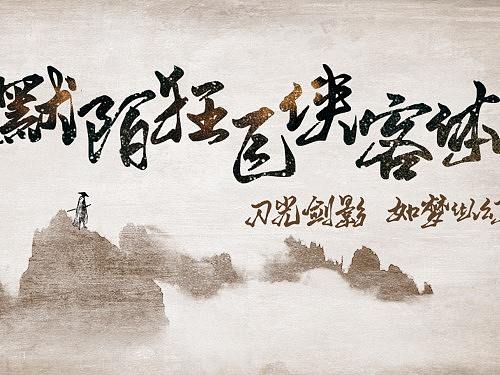 默陌狂匠侠客体
刀光剑影 如梦似幻